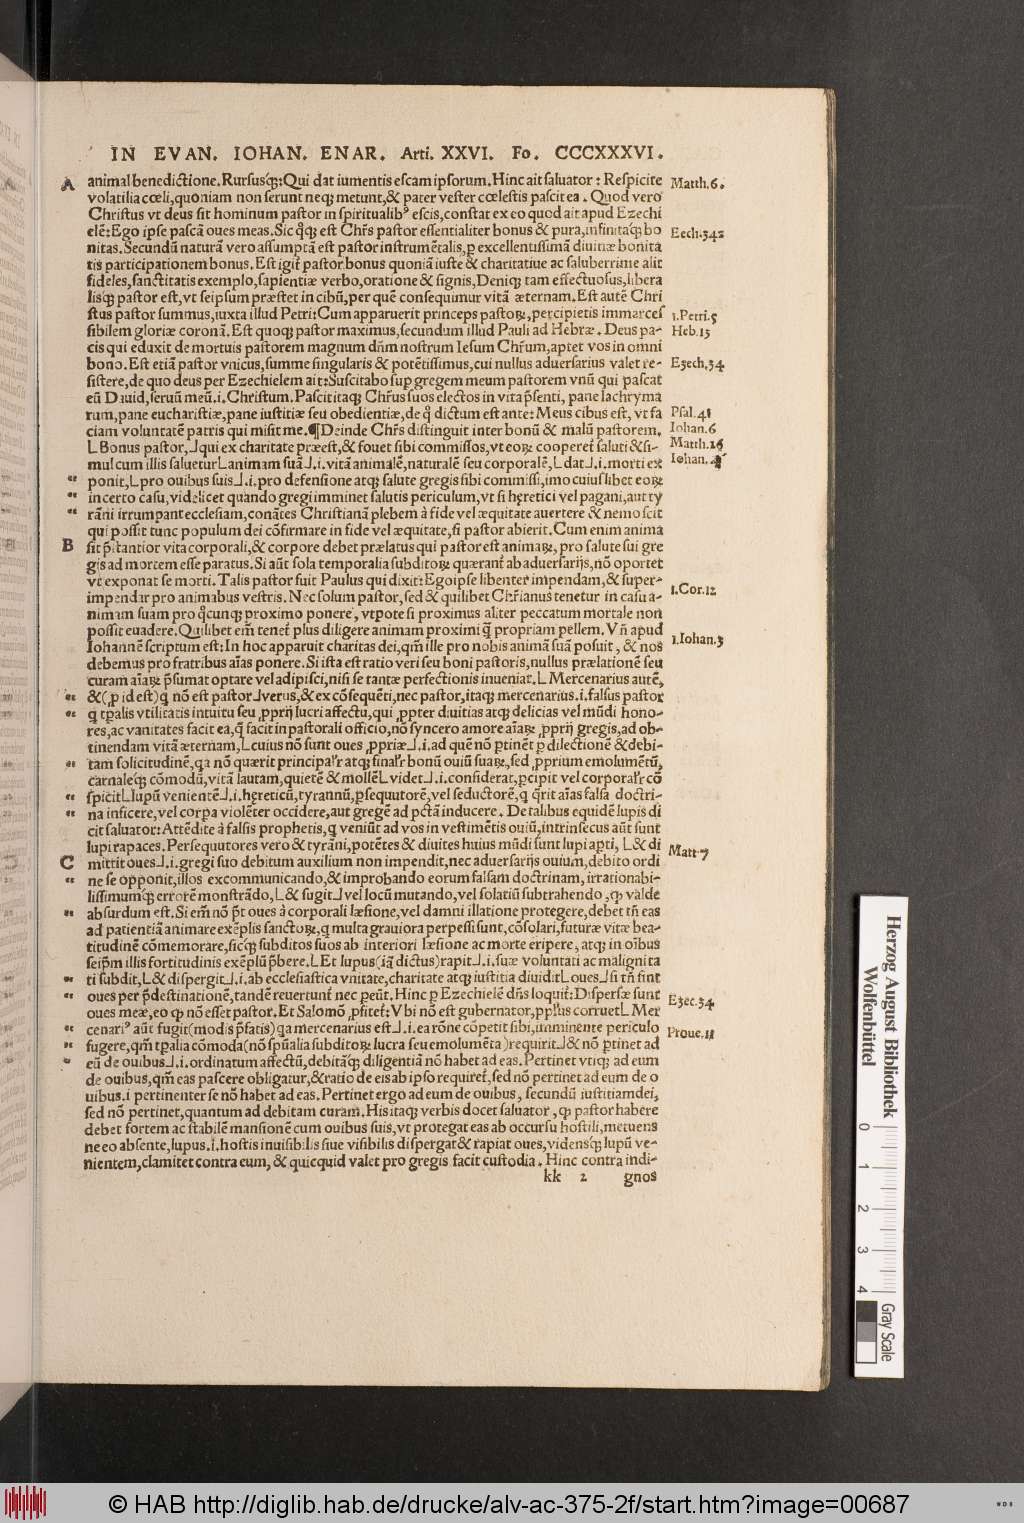 IN EVAN. IOHAN. ENAR. Arti. XXVI. Fo. CCCXXXVI.
A animal benedictione. Rursusq̃: Qui dat iumentis escam ipsorum. Hinc ait saluator: Respicite Matth.6.
volatilia cœli, quoniam non serunt neq; metunt, & pater vester cœlestis pascit ea. Quod vero
Christus vt deus sit hominum pastor in spiritualibꝰ escis, constat ex eo quod ait apud Ezechi
elē: Ego ipse pascā oues meas. Sic q̃q; est Chr̃s pastor essentialiter bonus & pura, infinitaq; bo Eech.34
nitas. Secundū naturā vero assumptā est pastor instrumētalis, ꝑ excellentissimā diuinæ bonita
tis participationem bonus. Est igit̃ pastor bonus quoniā iuste & charitatiue ac saluberrime alit
fideles, sanctitatis exemplo, sapientiæ verbo, oratione & signis, Deniq; tam effectuosus, libera
lisq; pastor est, vt seipsum præstet in cibū, per quē consequimur vitā æternam. Est autē Chri
stus pastor summus, iuxta illud Petri: Cum apparuerit princeps pastoꝝ, percipietis immarces 1.Petri.5
sibilem gloriæ coronā. Est quoq; pastor maximus, secundum illud Pauli ad Hebræ. Deus pa- Heb.13
cis qui eduxit de mortuis pastorem magnum dn̄m nostrum Iesum Chr̃um, aptet vos in omni
bono. Est etiā pastor vnicus, summe singularis & potētissimus, cui nullus aduersarius valet re- Ezech.34
sistere, de quo deus per Ezechielem ait: Suscitabo suꝑ gregem meum pastorem vnū qui pascat
eū Dauid, seruū meū .i. Christum. Pascit itaq; Chr̃us suos electos in vita p̃senti, pane lachryma
rum, pane eucharistiæ, pane iustitiæ seu obedientiæ, de q̃ dictum est ante: Meus cibus est, vt fa Psal.41
ciam voluntatē patris qui misit me. ¶ Deinde Chr̃s distinguit inter bonū & malū pastorem, Iohan.6
L Bonus pastor, ⅃ qui ex charitate præest, & fouet sibi commissos, vt eoꝝ cooperet̃ saluti & si- Matth.16
mul cum illis saluetur L animam suā ⅃ .i. vitā animalē, naturalē seu corporalē, L dat ⅃ .i. morti ex Iohan.
" ponit, L pro ouibus suis ⅃ .i. pro defensione atq; salute gregis sibi commissi, imo cuiuslibet eoꝝ
" in certo casu, videlicet quando gregi imminet salutis periculum, vt si hęretici vel pagani, aut ty
" rāni irrumpant ecclesiam, conātes Christianā plebem à fide vel æquitate auertere & nemo scit
qui possit tunc populum dei cōfirmare in fide vel æquitate, si pastor abierit. Cum enim anima
B sit p̃stantior vita corporali, & corpore debet prælatus qui pastor est animaꝝ, pro salute sui gre
gis ad mortem esse paratus. Si aūt sola temporalia subditoꝝ quærant̃ ab aduersarijs, nō oportet
vt exponat se morti. Talis pastor fuit Paulus qui dixit: Ego ipse libenter impendam, & super- 1.Cor.12
impendar pro animabus vestris. Nec solum pastor, sed & quilibet Chr̃ianus tenetur in casu a-
nimam suam pro q̃cunq; proximo ponere, vtpote si proximus aliter peccatum mortale non
possit euadere. Quilibet em̄ tenet̃ plus diligere animam proximi q̃ propriam pellem. Vn̄ apud
Iohannē scriptum est: In hoc apparuit charitas dei, qm̄ ille pro nobis animā suā posuit, & nos 1.Iohan.3
debemus pro fratribus aīas ponere. Si ista est ratio veri seu boni pastoris, nullus prælationē seu
curam aīaꝝ p̃sumat optare vel adipisci, nisi se tantæ perfectionis inueniat. L Mercenarius autē,
" & (ꝑ id est) q nō est pastor ⅃ verus, & ex cōsequēti, nec pastor, itaq; mercenarius .i. falsus pastor
" q tꝑalis vtilitatis intuitu seu ꝓprij lucri affectu, qui ꝓpter diuitias atq; delicias vel mūdi hono-
res, ac vanitates facit ea, q̃ facit in pastorali officio, nō syncero amore aīaꝝ ꝓprij gregis, ad ob-
tinendam vitā æternam, L cuius nō sunt oues ꝓpriæ ⅃ .i. ad quē nō ꝑtinēt ꝑ dilectionē & debi-
" tam solicitudinē, qa nō quærit principal'r atq; final'r bonū ouiū suaꝝ, sed ꝓprium emolumētū,
carnaleq; cōmodū, vitā lautam, quietē & mollē L videt ⅃ .i. considerat, ꝑcipit vel corporal'r cō
" spicit L lupū venientē ⅃ .i. hęreticū, tyrannū, ꝑsequutorē, vel seductorē, q q̃rit aīas falsa doctri-
" na inficere, vel corpa violēter occidere, aut gregē ad pctā inducere. De talibus equidē lupis di
cit saluator: Attēdite à falsis prophetis, q veniūt ad vos in vestimētis ouiū, intrinsecus aūt sunt
lupi rapaces. Persequutores vero & tyrāni, potētes & diuites huius mūdi sunt lupi aꝑti, L & di Matt.7
C mittit oues ⅃ .i. gregi suo debitum auxilium non impendit, nec aduersarijs ouium, debito ordi
" ne se opponit, illos excommunicando, & improbando eorum falsam doctrinam, irrationabi-
lissimumq; errorē monstrādo, L & fugit ⅃ vel locū mutando, vel solatiū subtrahendo, ꝙ valde
" absurdum est. Si em̄ nō p̄t oues à corporali læsione, vel damni illatione protegere, debet tn̄ eas
ad patientiā animare exēplis sanctoꝝ, q multa grauiora perpessi sunt, cōsolari, futuræ vitæ bea-
titudinē cōmemorare, sicq; subditos suos ab interiori læsione ac morte eripere, atq; in oībus
seip̄m illis fortitudinis exēplū p̃bere. L Et lupus (iā dictus) rapit ⅃ .i. suæ voluntati ac malignita
" ti subdit, L & dispergit ⅃ .i. ab ecclesiastica vnitate, charitate atq; iustitia diuidit L oues ⅃ si tn̄ sint
" oues per p̃destinationē, tandē reuertunt̃ nec peūt. Hinc ꝑ Ezechielē dn̄s loquit̃: Dispersæ sunt Ezec.34
oues meæ, eo ꝙ nō esset pastor. Et Salomō ꝓfitet̃: Vbi nō est gubernator, ppl'us corruet L Mer
" cenariꝰ aūt fugit (modis p̃fatis) qa mercenarius est ⅃ .i. ea rōne cōpetit sibi, imminente periculo Proue.11
" fugere, qm̄ tꝑalia cōmoda (nō spūalia subditoꝝ lucra seu emolumēta) requirit ⅃ & nō ꝑtinet ad
" eū de ouibus ⅃ .i. ordinatum affectū, debitāq; diligentiā nō habet ad eas. Pertinet vtiq; ad eum
de ouibus, qm̄ eas pascere obligatur, & ratio de eis ab ipso requiret̃, sed nō pertinet ad eum de o
uibus .i. pertinenter se nō habet ad eas. Pertinet ergo ad eum de ouibus, secundū iustitiam dei,
sed nō pertinet, quantum ad debitam curam. His itaq; verbis docet saluator, ꝙ pastor habere
debet fortem ac stabilē mansionē cum ouibus suis, vt protegat eas ab occursu hostili, metuens
ne eo absente, lupus .i. hostis inuisibilis siue visibilis dispergat & rapiat oues, vidensq; lupū ve-
nientem, clamitet contra eum, & quicquid valet pro gregis facit custodia. Hinc contra indi-
kk 2 gnos
Herzog August Bibliothek
Wolfenbüttel
0 1 2 3 4
Gray Scale
© HAB http://diglib.hab.de/drucke/alv-ac-375-2f/start.htm?image=00687